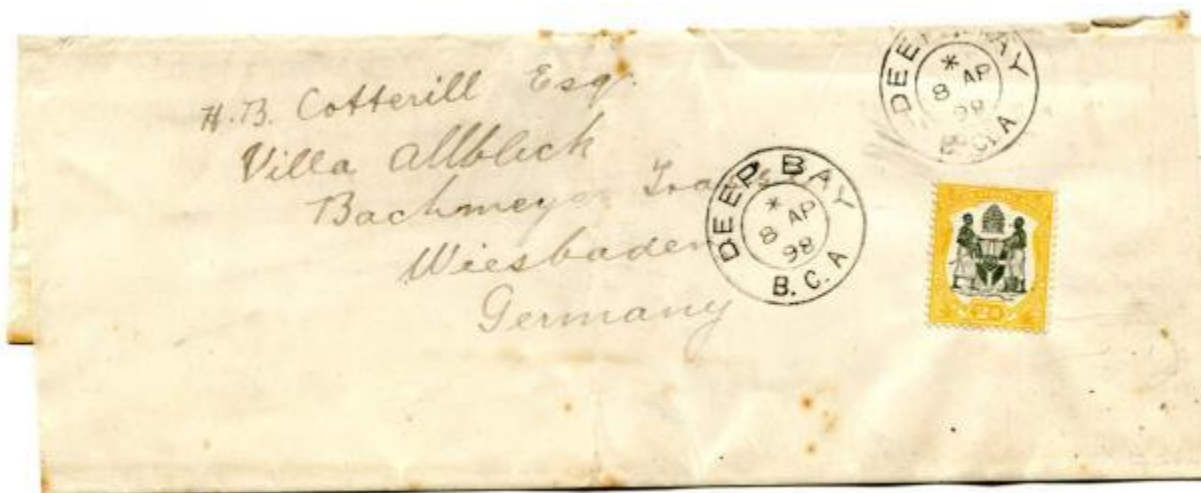 H.B. Cotterill Esq.
Villa Allblick
Wiesbaden
Germany
DEEP BAY
*
8 AP
98
B.C.A
DEEP BAY
*
8 AP
98
B.C.A